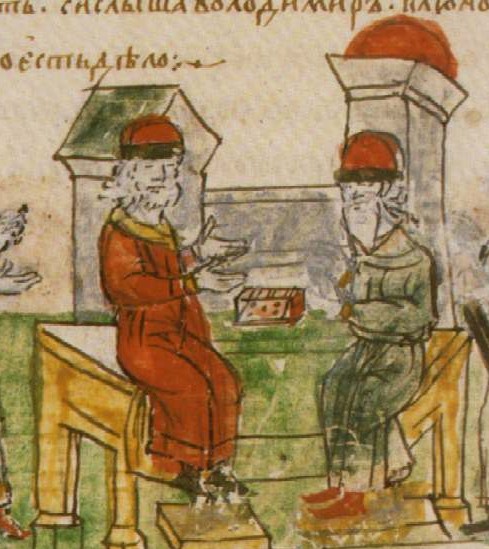 ть. сислыша володимиръ.
о естьдѣло:~